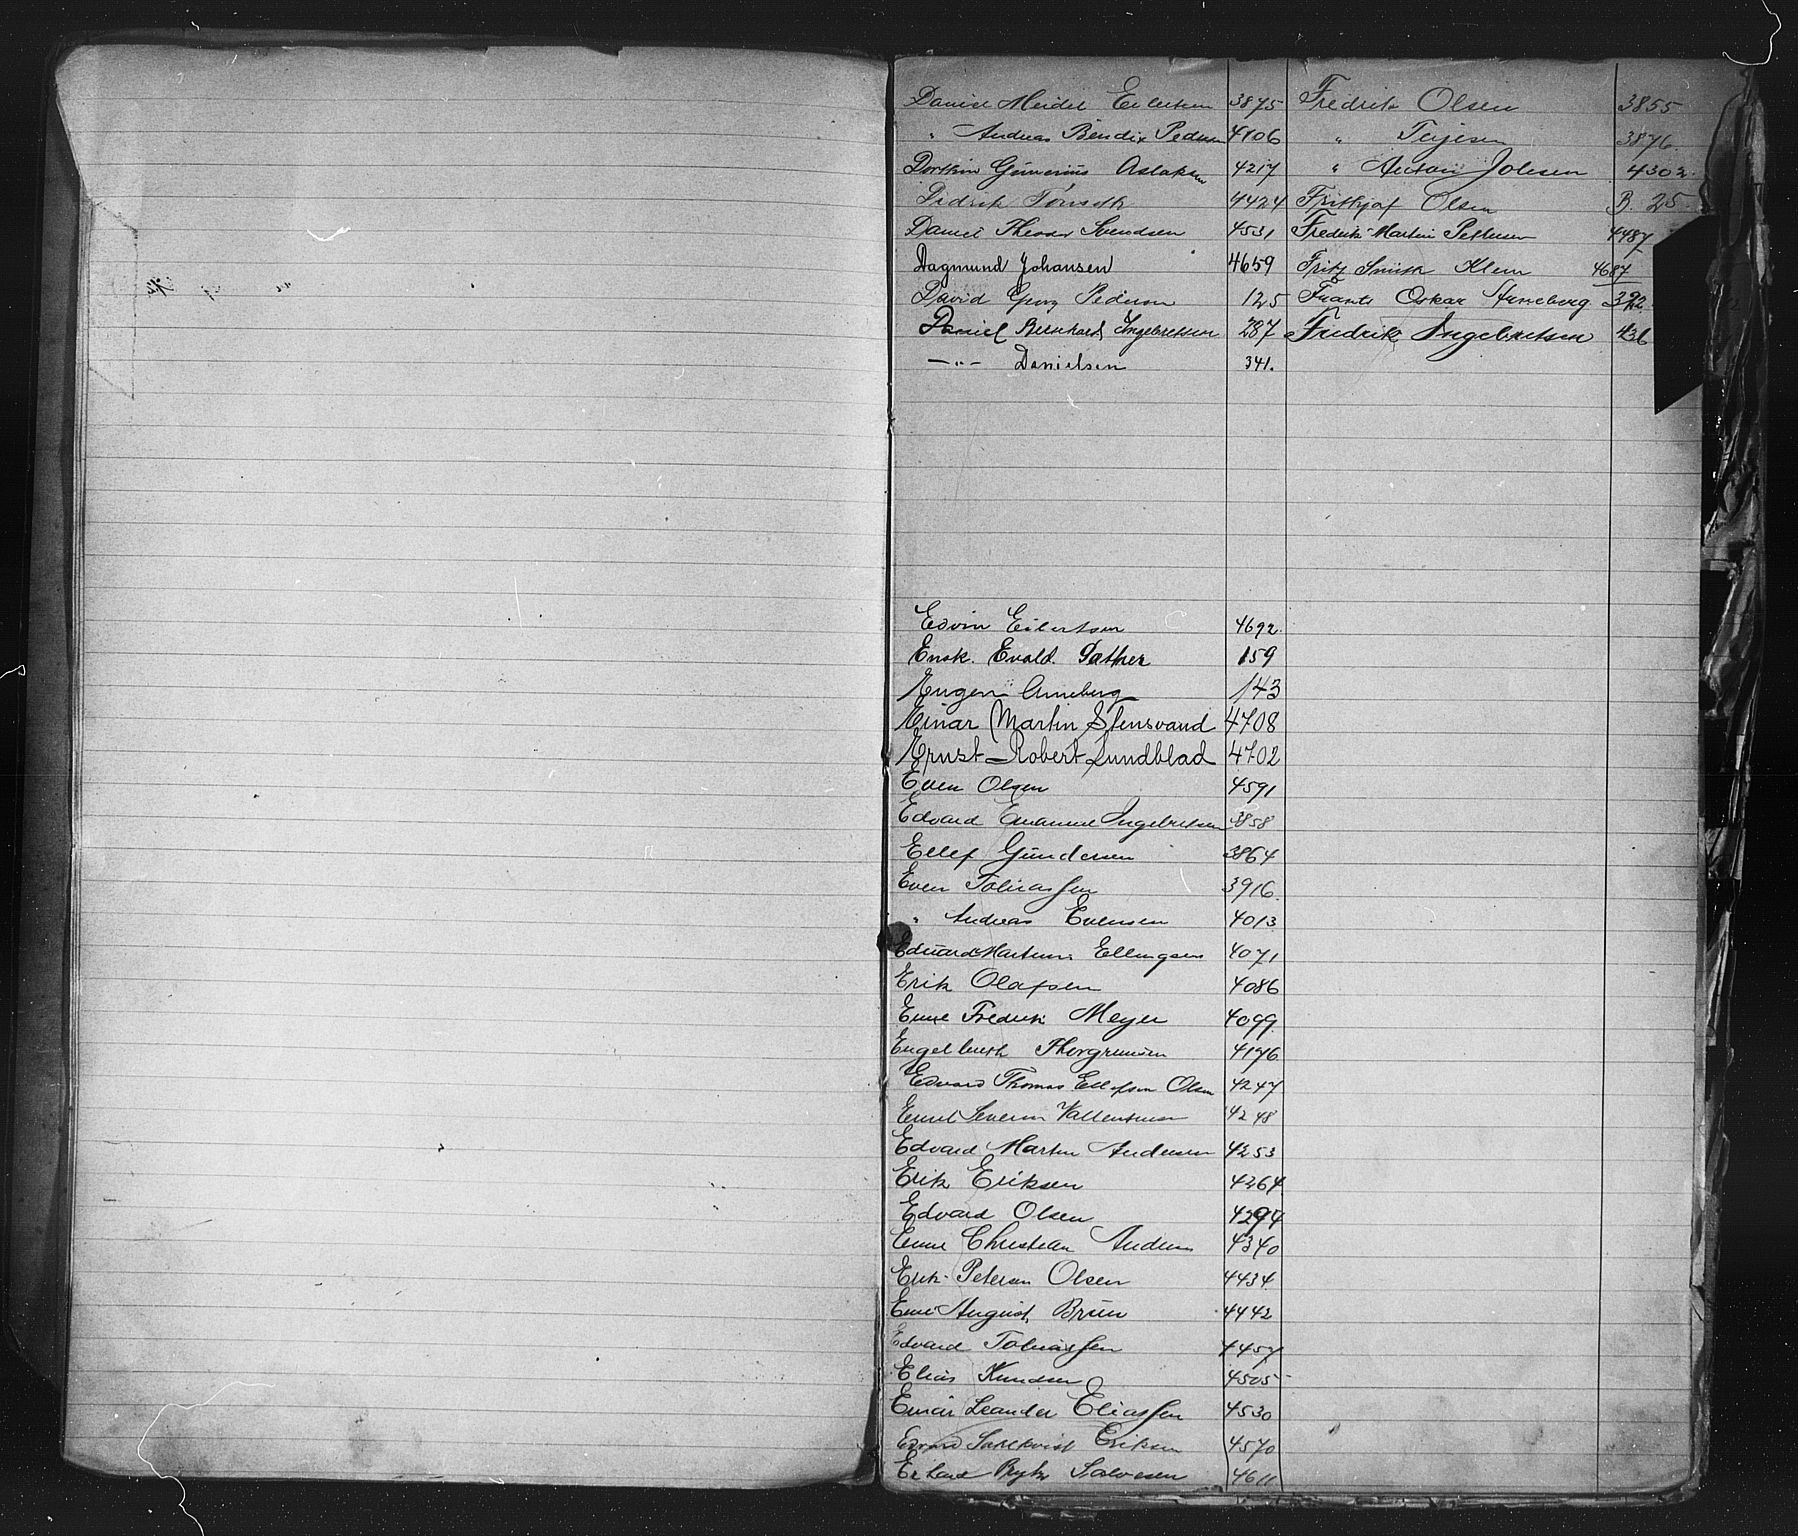 Daniel Meidel Eilertsen 3875
" Andreas Bendix Pedersen 4106
Gunerius Aslaksen 4217
Didrik Tönseth 4424
Daniel Theodor Svendsen 4531
Dagmund Johansen 4659
David Georg Pedersen 125
Daniel Bernhard Ingebretsen 287
—"— Danielsen 341.
Edvin Eilertsen 4692.
Ensk. Evald. Sather 159
Eugen Arneberg 143
Einar Martin Stensvand 4708
Ernst Robert Lundblad 4702
Even Olsen 4591
Edvard Emanuel Ingebretsen 3858
Ellef Gundersen 3864
Even Tobiassen 3916.
" Andreas Evensen 4013
Eduard Martinus Ellingsen 4071
Erik Olafsen 4086
Emil Fredrik Meyer 4099
Engelbreth Thorgrimsen 4176
Edvard Thomas Ellefsen Olsen 4247
Emil Severin Vallentinsen 4248
Edvard Martin Andersen 4253
Erik Eriksen 4264
Edvard Olsen 4294
Emil Christian Andersen 4340
Erik Petersen Olsen 4434
Emil August Brün 4442
Edvard Tobiassen 4457
Elias Knudsen 4505
Einar Leander Eliassen 4530
Sahlkvist Eriksen 4570
Salvesen 4611
Fredrik Olsen 3855
" Terjesen 3876.
" Anton Johnsen 4302.
Frithjof Olsen B. 25.
Fredrik Martin Pettersen 4487
Fritz Smith Klem 4687
Frants Oskar Arneberg 392.
Fredrik Ingebretsen 436